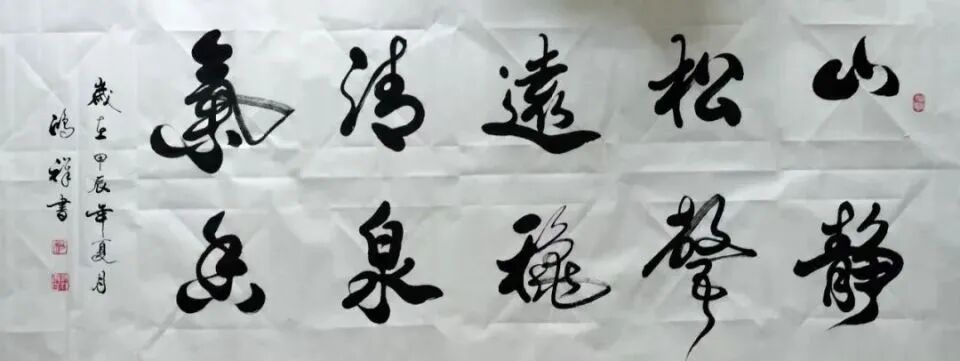 山静
松聲
遠穐
清泉
氣香
歲在甲辰年夏月
鴻祥書